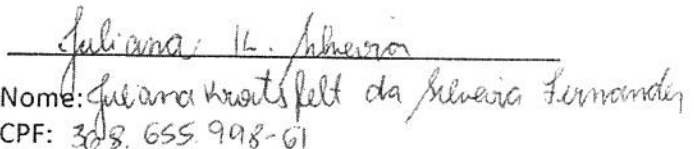 Juliana K. Silveira
Nome: Juliana Kroatsfelt da Silveira Fernandes
CPF: 368.655.998-61